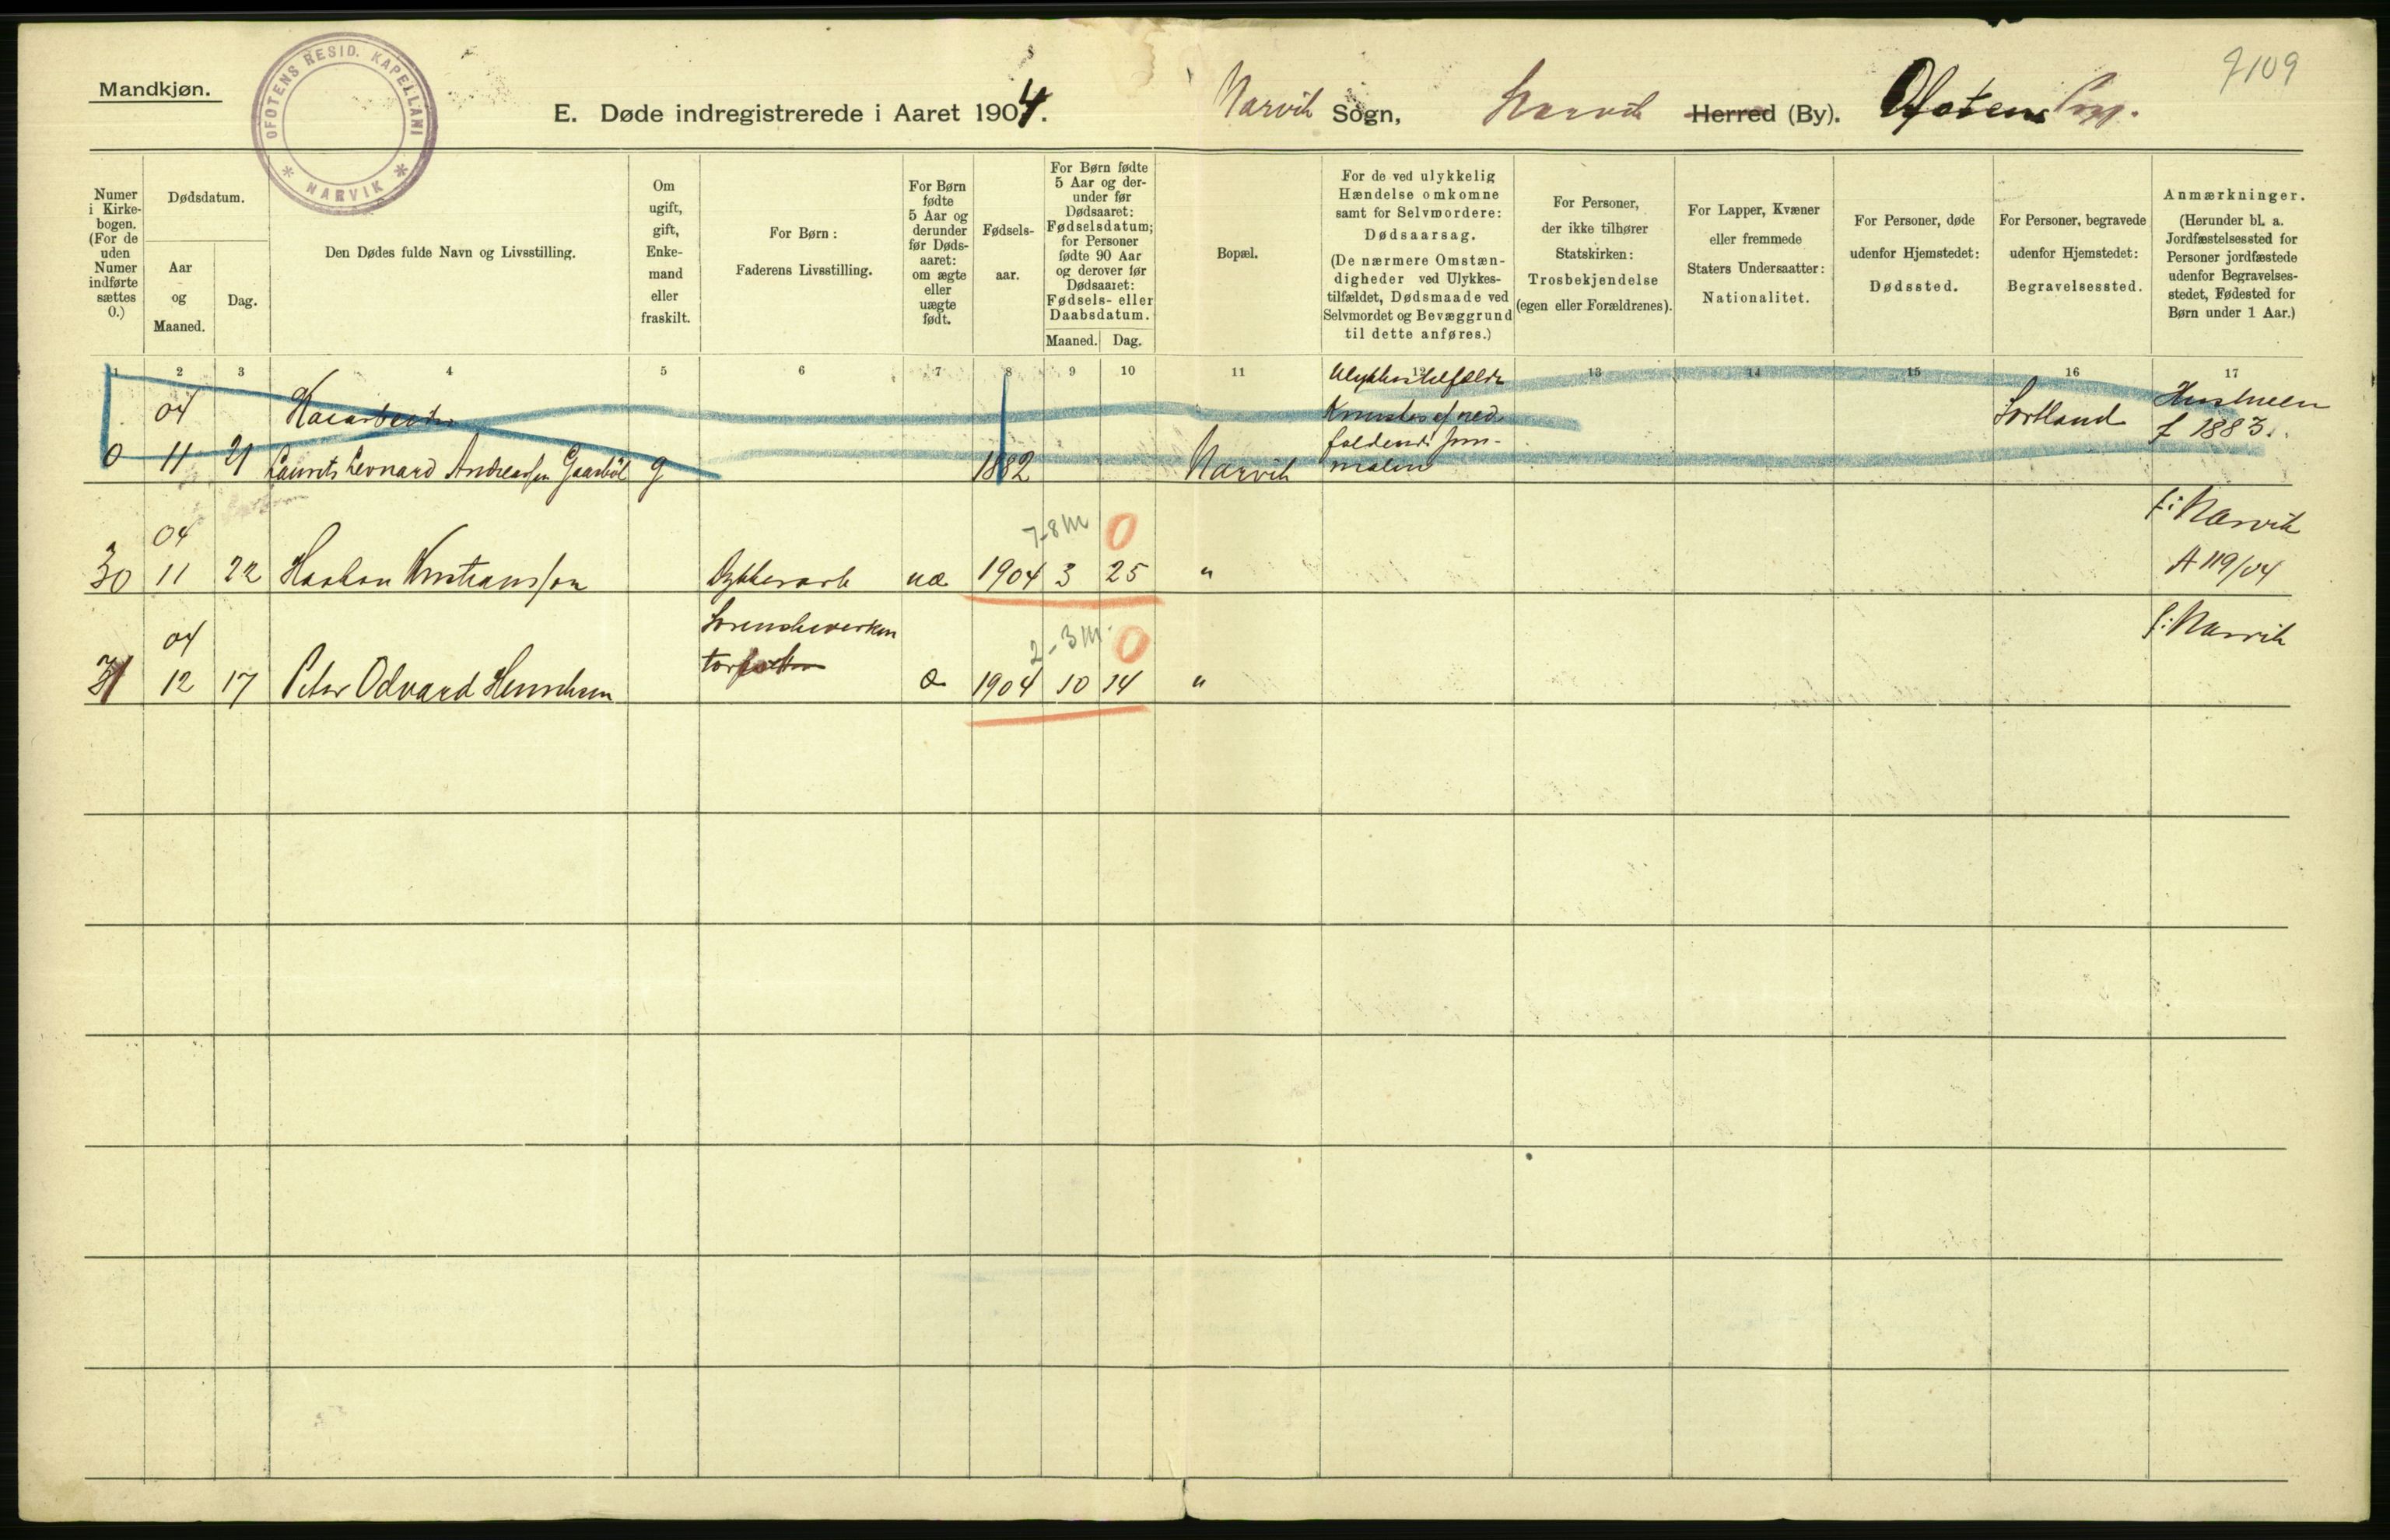 7109
Mandkjøn.
OFOTENS RESID. KAPELLANI * NARVIK *
E. Døde indregistrerede i Aaret 1904. Narvik Sogn, Narvik Herred (By). Ofotens Prgj.
Numer i Kirke-bogen. (For de uden Numer indførte sættes 0.)
Dødsdatum.
Aar og Maaned.
Dag.
Den Dødes fulde Navn og Livsstilling.
Om ugift, gift, Enke-mand eller fraskilt.
For Børn:
Faderens Livsstilling.
For Børn fødte 5 Aar og derunder før Døds-aaret: om ægte eller uægte født.
Fødsels-aar.
For Børn fødte 5 Aar og der-under før Dødsaaret: Fødselsdatum; for Personer fødte 90 Aar og derover før Dødsaaret: Fødsels- eller Daabsdatum.
Maaned. Dag.
Bopæl.
For de ved ulykkelig Hændelse omkomne samt for Selvmordere: Dødsaarsag.
(De nærmere Omstæn-digheder ved Ulykkes-tilfældet, Dødsmaade ved Selvmordet og Bevæggrund til dette anføres.)
For Personer, der ikke tilhører Statskirken: Trosbekjendelse (egen eller Forældrenes).
For Lapper, Kvæner eller fremmede Staters Undersaatter: Nationalitet.
For Personer, døde udenfor Hjemstedet: Dødssted.
For Personer, begravede udenfor Hjemstedet: Begravelsessted.
Anmærkninger.
(Herunder bl. a. Jordfæstelsessted for Personer jordfæstede udenfor Begravelses-stedet, Fødested for Børn under 1 Aar.)
1 2 3 4 5 6 7 8 9 10 11 12 13 14 15 16 17
04 Ulykkestilfælde Hustruen
Knustes af ned Sortland f 1883.
0 11 21 Laurits Leonard Andreassen g 1882 Narvik faldende jern-
malm
04 7-8 m 0 f: Narvik
30 11 22 Haakon Kristiansson uæ 1904 3 25 " A 119/04
04 2-3 m. 0 f: Narvik
31 12 17 Peter Odvard Henriksen æ 1904 10 14 "